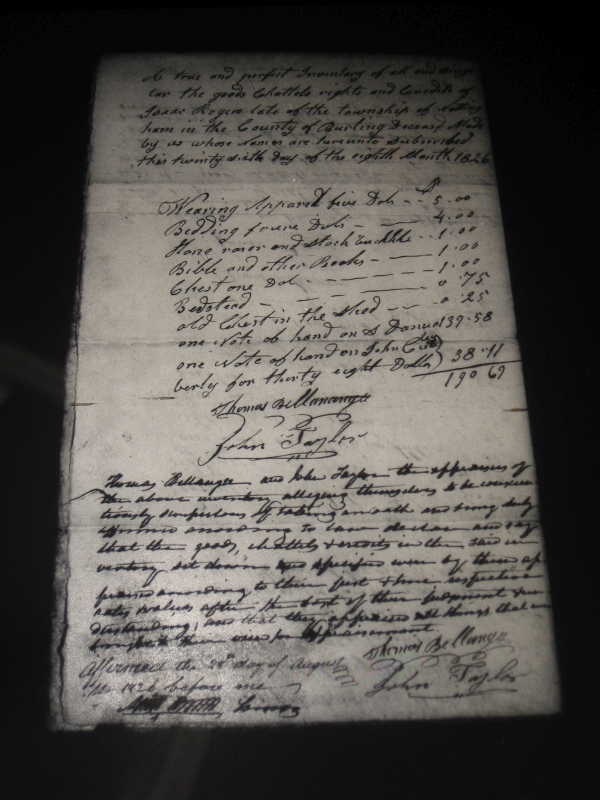 A true and perfect Inventory of all and singu
lar the goods Chattels rights and Credits of
Isaac Rogers late of the township of Notting
ham in the County of Burling Deceasd Made
by us whose Names are hereunto Subscribed
this twenty sixth Day of the eighth Month 1826
Wearing Apparel five Dols $5.00
Bedding foure Dols 4.00
Hone rasor and Stock buckkle 1.00
Bible and other Books 1.00
Chest one Dol 1.00
Bedstead 0.75
old Chest in the Shed 0.25
one Note of hand on S Danual 139.58
one Note of hand on John Cu
berly for thirty eight Dollars 38.11
190 69
Thomas Bellangee
John Taylor
Thomas Bellangee and John Taylor the appraisers of
the above inventory alledging themselves to be conscien
tiously scrupulous of taking an oath and being duly
affirmed according to law declare and say
that the goods, chattels & credits in the said in
ventory set down and specified were by them ap
praised according to their just & true respective
rates & values after the best of their judgment & un
derstanding; and that they appraised all things that were
brought to their view for appraisement
Affirmed the 28th day of August
1826 before me
Thomas Bellangee
John Taylor